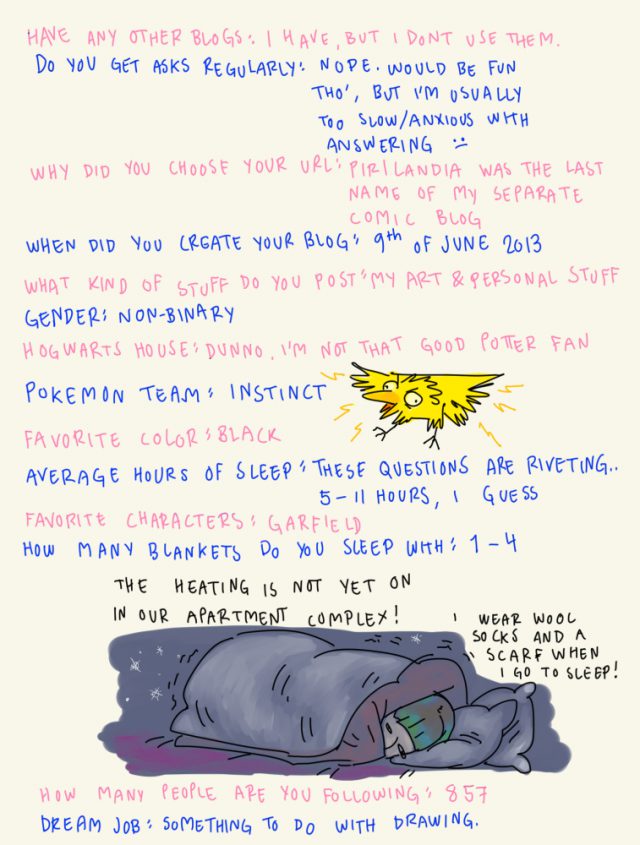 HAVE ANY OTHER BLOGS: I HAVE, BUT I DONT USE THEM.
DO YOU GET ASKS REGULARLY: NOPE. WOULD BE FUN
THO', BUT I'M USUALLY
TOO SLOW/ANXIOUS WITH
ANSWERING :(
WHY DID YOU CHOOSE YOUR URL: PIRILANDIA WAS THE LAST
NAME OF MY SEPARATE
COMIC BLOG
WHEN DID YOU CREATE YOUR BLOG: 9th OF JUNE 2013
WHAT KIND OF STUFF DO YOU POST: MY ART & PERSONAL STUFF
GENDER: NON-BINARY
HOGWARTS HOUSE: DUNNO, I'M NOT THAT GOOD POTTER FAN
POKEMON TEAM: INSTINCT
FAVORITE COLOR: BLACK
AVERAGE HOURS OF SLEEP: THESE QUESTIONS ARE RIVETING..
5-11 HOURS, I GUESS
FAVORITE CHARACTERS: GARFIELD
HOW MANY BLANKETS DO YOU SLEEP WITH: 1-4
THE HEATING IS NOT YET ON
IN OUR APARTMENT COMPLEX!
I WEAR WOOL
SOCKS AND A
SCARF WHEN
I GO TO SLEEP!
HOW MANY PEOPLE ARE YOU FOLLOWING: 857
DREAM JOB: SOMETHING TO DO WITH DRAWING.